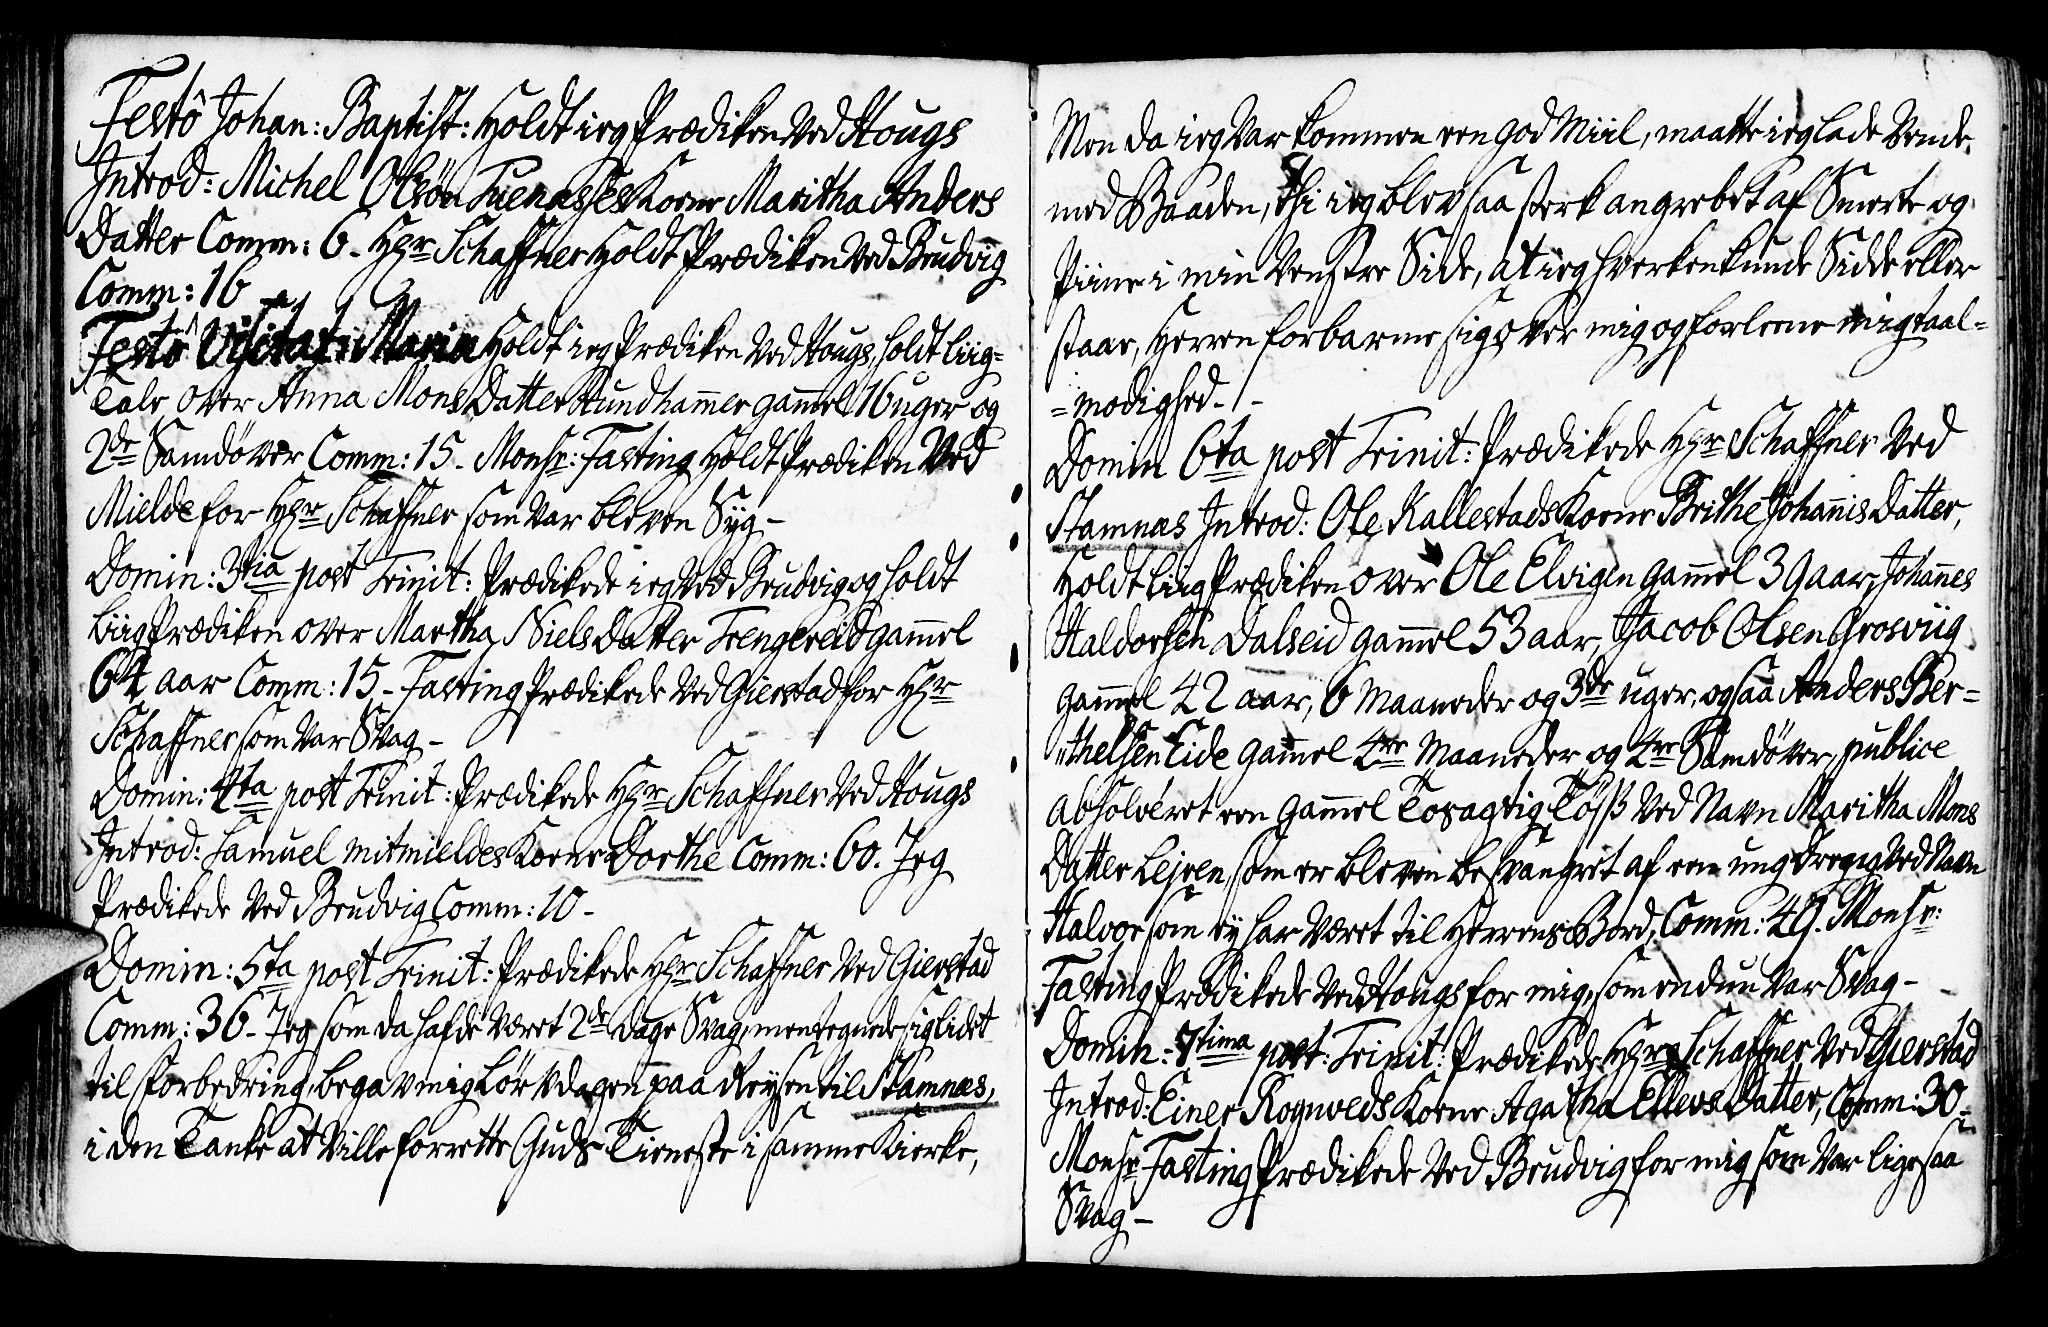 Festô Johan: Baptist: Holdt ieg Prædiken Ved Hougs
Introd: Michel Olsøn Kone Maritha Anders
Datter Comm: 6. Hr Schaffner Holdt Prædiken Ved Brudvig
Comm: 16
Festô Visitat: Mariæ Holdt ieg Prædiken Ved Hougs, holdt Liig=
Tale over Anna Mons Datter Hundhamer gamel 16 uger og
2de Samdøver Comm: 15. Monsr: Fasting Holdt Prædiken Ved
Mielde for Hr Schaffner som Var bleven Syg –
Domin: 3tia post Trinit: Prædikede ieg Ved Brudvig og holdt
Liig Prædiken over Martha Niels Datter Trengereid gamel
64 aar Comm: 15. Fasting Prædikede Ved Gierstad for Hr
Schaffner som Var Svag –
Domin: 4ta post Trinit: Prædikede Hr Schaffner Ved Hougs
Introd: Samuel mitmieldes Kone Dorthe Comm: 60. Jeg
Prædikede Ved Brudvig Comm: 10 –
Domin: 5ta post Trinit: Prædikede Hr Schaffner Ved Gierstad
Comm: 36. Jeg som da hafde Været 2de dage Svag, men tegnede sig lidet
til forbedring, begav mig Løverdagen paa Reysen til Stamnæs,
i den Tanke at Ville forrette Guds Tieneste i samme Kierke,
Men da ieg Var kommen een god Miil, maatte ieg lade Vende
med Baaden, thi ieg blev saa sterk angrebet af Smerte og
Piine i min Venstre Side, at ieg hverken kunde Sidde eller
staae, Herren forbarme sig over mig og forleene mig taal=
=modighed – / –
Domin 6ta post Trinit: Prædikede Hr Schaffner Ved
Stamnæs Introd: Ole Kallestads Kone Brithe Johanis Datter,
Holdt Liig Prædiken over Ole Elvigen gamel 39 aar, Johanes
Haldorsen Dalseid gamel 53 aar, Jacob Olsen Grosviig
gamel 42 aar, 6 Maaneder og 3de uger, og saa Anders Ber=
"thelsen Eide gamel 4re Maaneder og 4re Samdøver, publice
absolveret een gamel Tosagtig Tøsß Ved Navn Maritha Mons
Datter Lejren, som er bleven besvangret af een ung dreng Ved Navn
Halvor som ey har Været til Herrens Bord, Comm: 49. Monsr:
Fasting Prædikede Ved Hougs for mig, som endnu Var Svag –
Domin: 7tima post: Trinit: Prædikede Hr Schaffner Ved Gierstad
Introd: Einer Rognveds Kone Agatha Ellevs Datter, Comm: 30 –
Monsr Fasting Prædikede Ved Brudvig for mig som Var ligesaa
Svag –